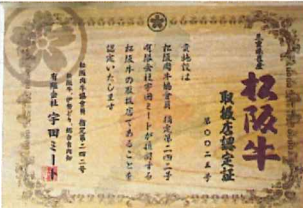 三重県産
松阪牛
取扱店認定証
第〇〇二五号
貴施設は
松阪肉牛協会員 指定第二四二号
有限会社宇田ミートが指定する
松阪牛の取扱店であることを
認定いたします
松阪肉牛協会員 指定第二四二号
有限会社 宇田ミート